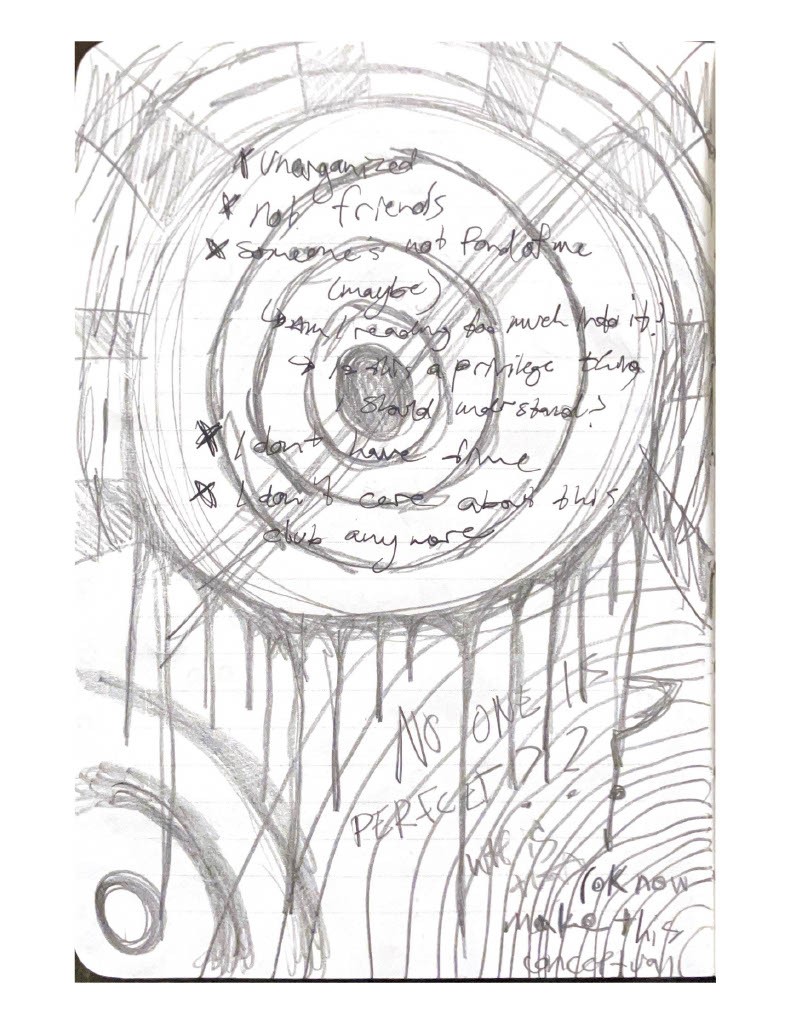 * Unorganized
* not friends
* Someone's not fond of me
(maybe)
↳ Am I reading too much into it?
→ Is this a privilege thing
I should understand?
* I don't have time
* I don't care about this
club anymore
NO ONE IS
PERFCET
(OK now
make this
conceptual